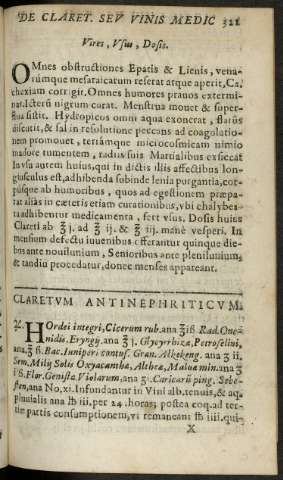 DE CLARET. SEV VINIS MEDIC 321
Vires, Vsus, Dosis.
OMnes obstructiones Epatis & Lienis, vena-
rúmque mesaraicarum reserat atque aperit, Ca-
chexiam corrigit. Omnes humores prauos extermi-
nat. Icterū nigrum curat. Menstrua mouet & super-
flua sistit. Hydropicos omni aqua exoncrat, flatūs
discutit, & sal in resolutione peccans ad coagulatio-
nem promouet, terrámque microcosmicam nimio
madore tumentem, radiis suis Martialibus exsiccat
In vsu autem huius, qui in dictis illis affectibus lon-
giusculus est, adhibenda subinde lenia purgantia, cor-
púsque ab humoribus, quos ad egestionem præpa-
rat aliàs in cæteris etiam curationibus, vbi chalybea-
ta adhibentur medicamenta, fert vsus. Dosis huius
Clareti ab ℥j. ad ℥ij. & ℥iij. manè vesperi. In
mensium defectu iuuenibus efferantur quinque die-
bus ante nouilunium, Senioribus ante plenilunium,
& tandiu procedatur, donec menses appareant.
CLARETVM ANTINEPHRITICVM.
℞. HOrdei integri, Cicerum rub. ana ℥iß. Rad. Ono-
nidis, Eryngÿ, ana ℥j. Glycyrrhiza, Petroselini,
ana ℥ß. Bac. Iuniper. contus. Gran. Alkekeng. ana ʒii.
Sem. Milÿ Solis Oxyacantha, Althea, Malua min. ana ʒ
iß. Flor. Genista Violarum, ana ʒj. Caricarū ping. Sebe-
sten, ana No. xj. Infundantur in Vini alb. tenuis, & aq.
pluuialis ana ℔ iii. per 24. horas; postea coq. ad ter-
tiæ partis consumptionem, vt remaneant ℔ iiii. qui-
X